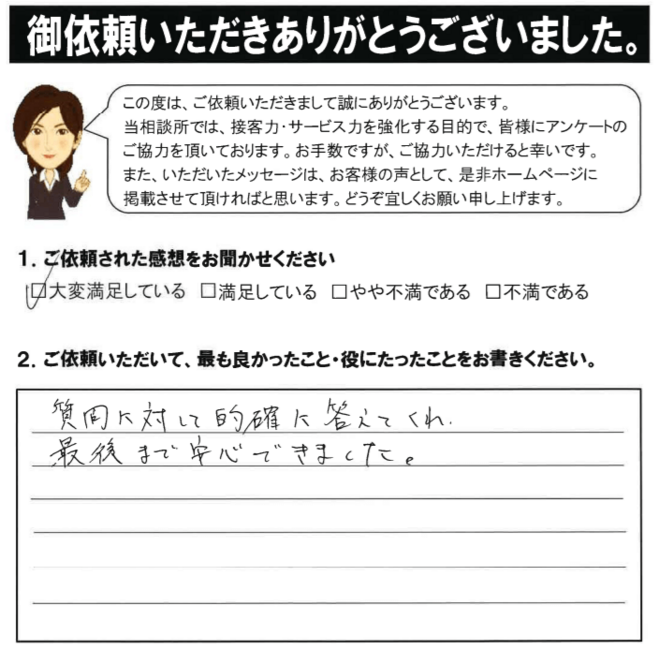 御依頼いただきありがとうございました。
この度は、ご依頼いただきまして誠にありがとうございます。
当相談所では、接客力・サービス力を強化する目的で、皆様にアンケートの
ご協力を頂いております。お手数ですが、ご協力いただけると幸いです。
また、いただいたメッセージは、お客様の声として、是非ホームページに
掲載させて頂ければと思います。どうぞ宜しくお願い申し上げます。
1. ご依頼された感想をお聞かせください
☑大変満足している □満足している □やや不満である □不満である
2. ご依頼いただいて、最も良かったこと・役にたったことをお書きください。
質問に対して的確に答えてくれ.
最後まで安心できました。